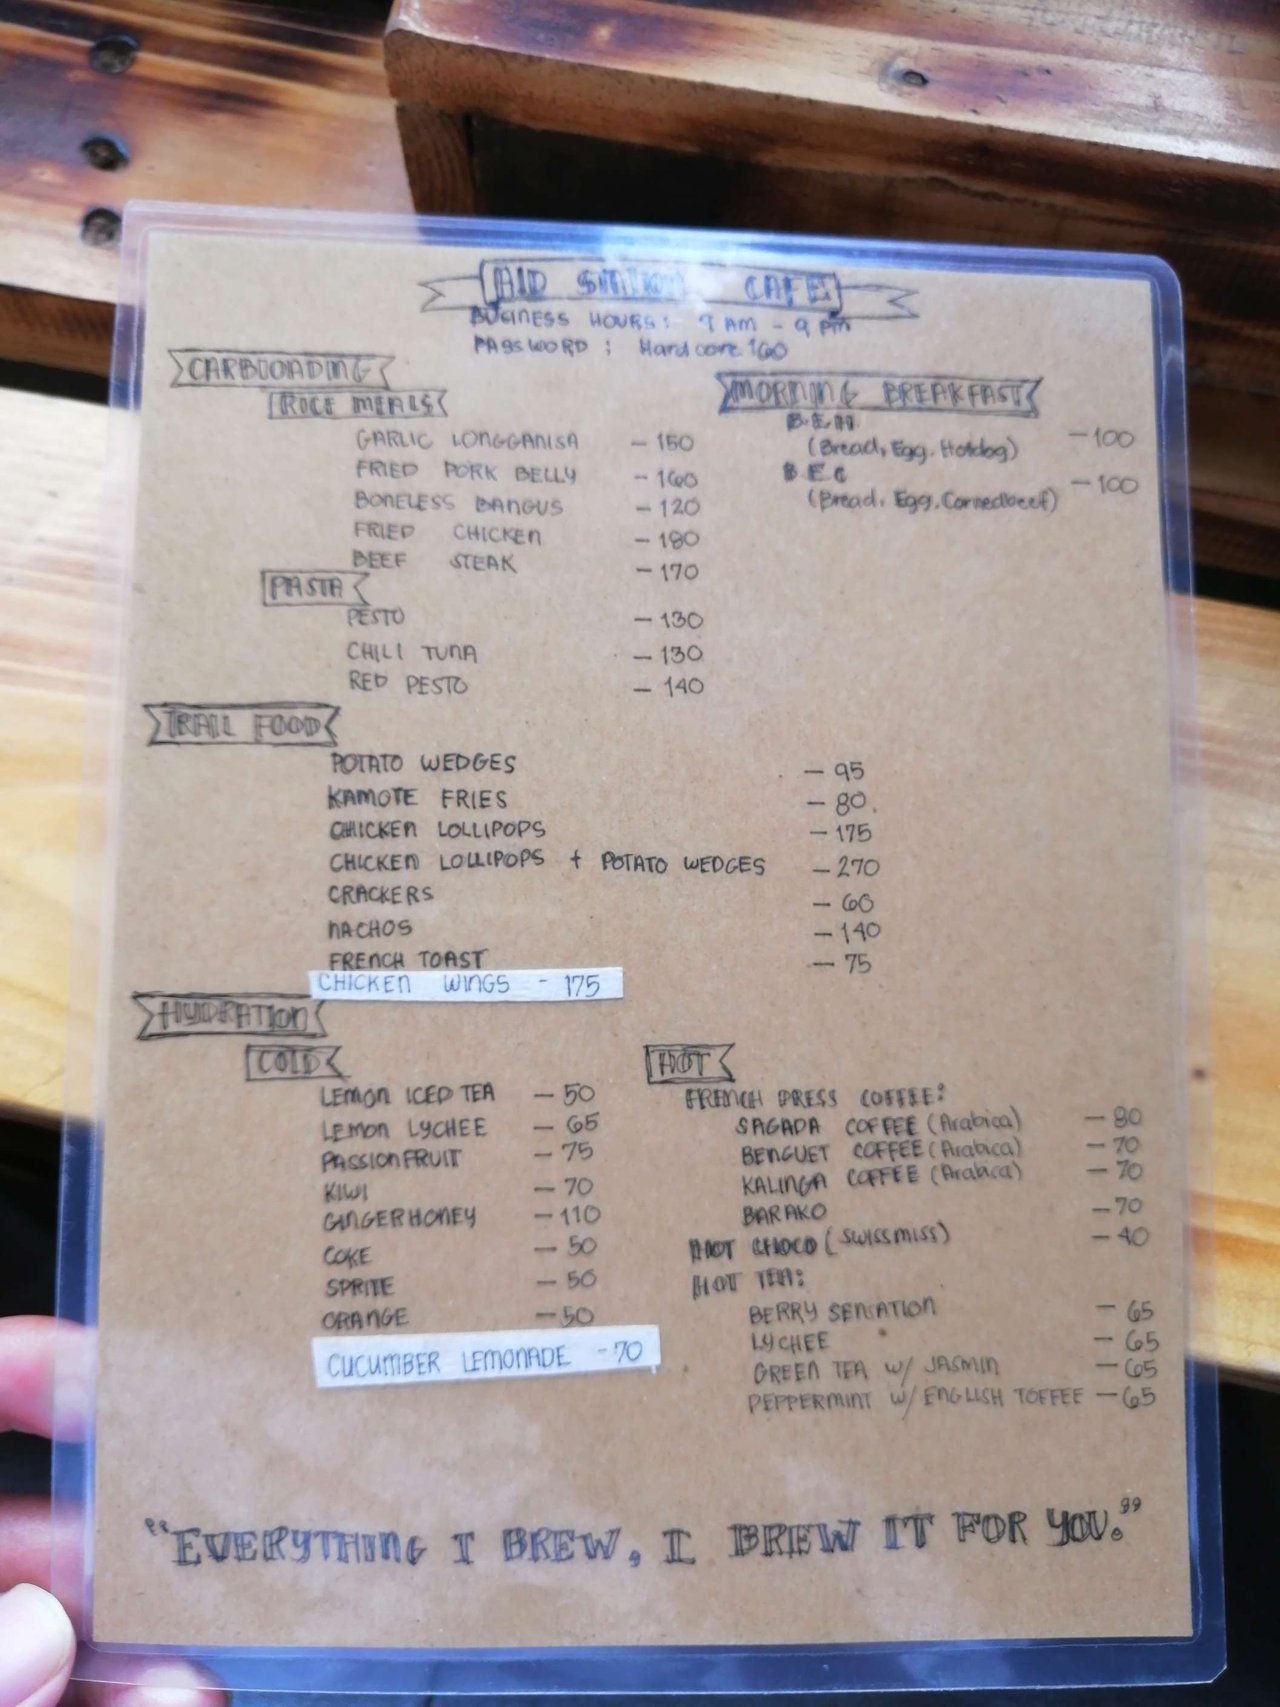 AID STATION CAFE
BUSINESS HOURS: 9 AM - 9 PM
PASSWORD : Hardcore 160
CARBLOADING
RICE MEALS
GARLIC LONGGANISA - 150
FRIED PORK BELLY - 160
BONELESS BANGUS - 120
FRIED CHICKEN - 180
BEEF STEAK - 170
PASTA
PESTO - 130
CHILI TUNA - 130
RED PESTO - 140
MORNING BREAKFAST
B.E.H.
(Bread, Egg. Hotdog) - 100
B.E.C
(Bread, Egg. Cornedbeef) - 100
TRAIL FOOD
POTATO WEDGES - 95
KAMOTE FRIES - 80.
CHICKEN LOLLIPOPS - 175
CHICKEN LOLLIPOPS + POTATO WEDGES - 270
CRACKERS - 60
NACHOS - 140
FRENCH TOAST - 75
CHICKEN WINGS - 175
HYDRATION
COLD
LEMON ICED TEA - 50
LEMON LYCHEE - 65
PASSIONFRUIT - 75
KIWI - 70
GINGERHONEY - 110
COKE - 50
SPRITE - 50
ORANGE - 50
CUCUMBER LEMONADE - 70
HOT
FRENCH PRESS COFFEE:
SAGADA COFFEE (Arabica) - 80
BENGUET COFFEE (Arabica) - 70
KALINGA COFFEE (Arabica) - 70
BARAKO - 70
HOT CHOCO (SWISSMISS) - 40
HOT TEA:
BERRY SENSATION - 65
LYCHEE - 65
GREEN TEA W/ JASMIN - 65
PEPPERMINT W/ ENGLISH TOFFEE - 65
"EVERYTHING I BREW, I BREW IT FOR YOU."